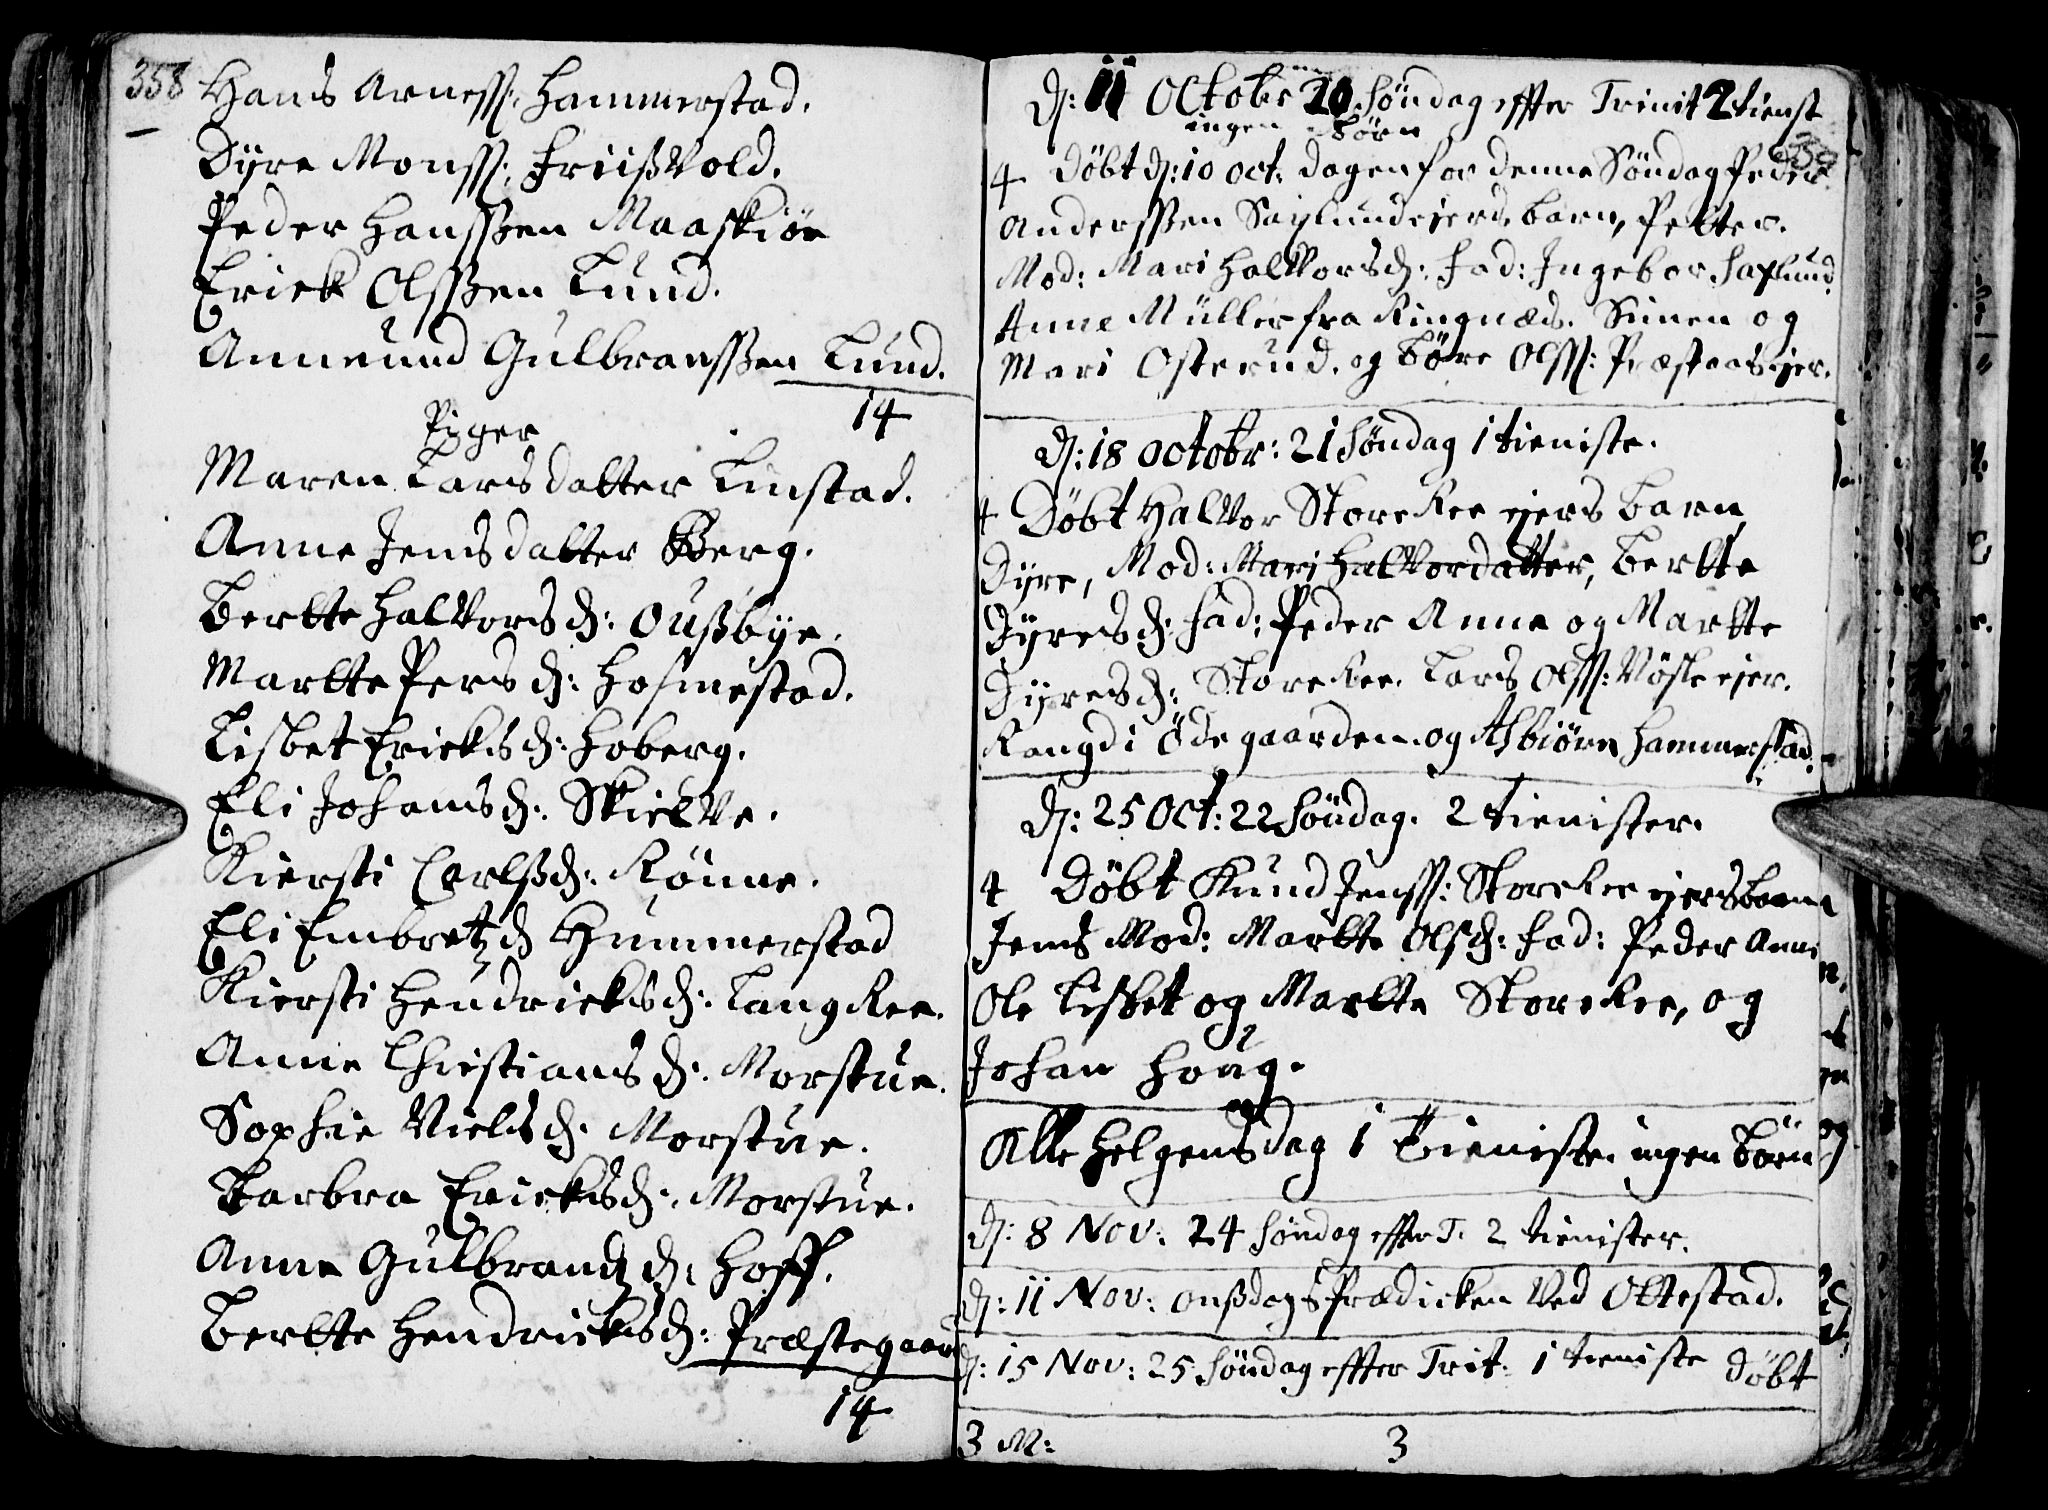 358 Hans Arness: Hammerstad.
Dÿre Monss: Friisvold.
Peder Hanssen Maaskiør
Erick Olssen Lund.
Ammund Gulbranssen Lund.
14
Piger
Maren Larsdatter Linstad.
Anne Jensdatter Berg.
Bertte Halvorsd: Ousbye.
Martte Persd: Hosmestad.
Lisbet Ericksd: Hoberg.
Eli Johansd: Skielve.
Kiersti Carlsd: Rønne.
Eli Embretzd Hummerstad
Kiersti Hendricksd: LangRee.
Anne Christiansd: Morstue.
Sophie Nielsd: Morstue.
Barbra Ericksd: Morstue.
Anne Gulbrandzd: Hoff.
Bertte Hendricksd: Præstegaard
14
D: 11 Octobr 20 Søndag effter Trinit 2 tienst
ingen Børn
359
4 Døbt d: 10 Oct: dagen for denne Søndag Peder
Anderssen Saxlundeierd. barn, Petter.
Mod: Mari Halvorsd: Fad: Ingebor Saxlund.
Anne Müller fra Ringnæs. Simen og
Mari Osterud. og Børe Olss: Præstaaseier.
D: 18 Octobr: 21 Søndag 1 tieniste.
4 Døbt Halvor StoreRee eiers Barn
Dyre, Mod: Mari Halvordatter, Bertte
Dyresd: Fad: Peder Anne og Martte
Dyresd: StoreRee. Lars Olss: Nøsle eier.
Rangdi Ødegaarden. og Asbiørn Hammerstad.
D: 25 Oct: 22 Søndag. 2 tienister.
4 Døbt Knud Jenss: StoreRee eiers barn
Jens Mod: Martte Olsd: Fad: Peder Anne
Ole Lisbet og Martte StoreRee, og
Johan Houg.
Alle Helgensdag 1 Tieniste. ingen Børn
D: 8 Nov: 24 Søndag effter T. 2 tienister.
D: 11 Nov: Onsdags Prædicken ved Ottestad.
D: 15 Nov: 25 Søndag effter Trit: 1 tieniste Døbt
3 M: 3